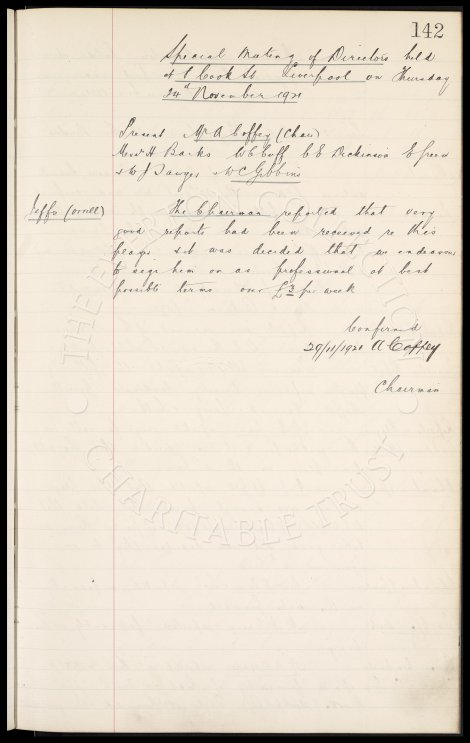 142
Special Meeting of Directors held
at 1 Cook St Liverpool on Thursday
24th November 1921
Present Mr A Coffey (Chair)
Messrs H Banks W E Cuff C E Dickinson E Green
& W J Sawyer & W C Gibbins
Jeffs (Orrell) The Chairman reported that very
good reports had been received re this
player & it was decided that an endeavour
to sign him on as professional at best
possible terms over £3 per week
Confirmed
29/11/1921 A Coffey
Chairman
CHARITABLE TRUST